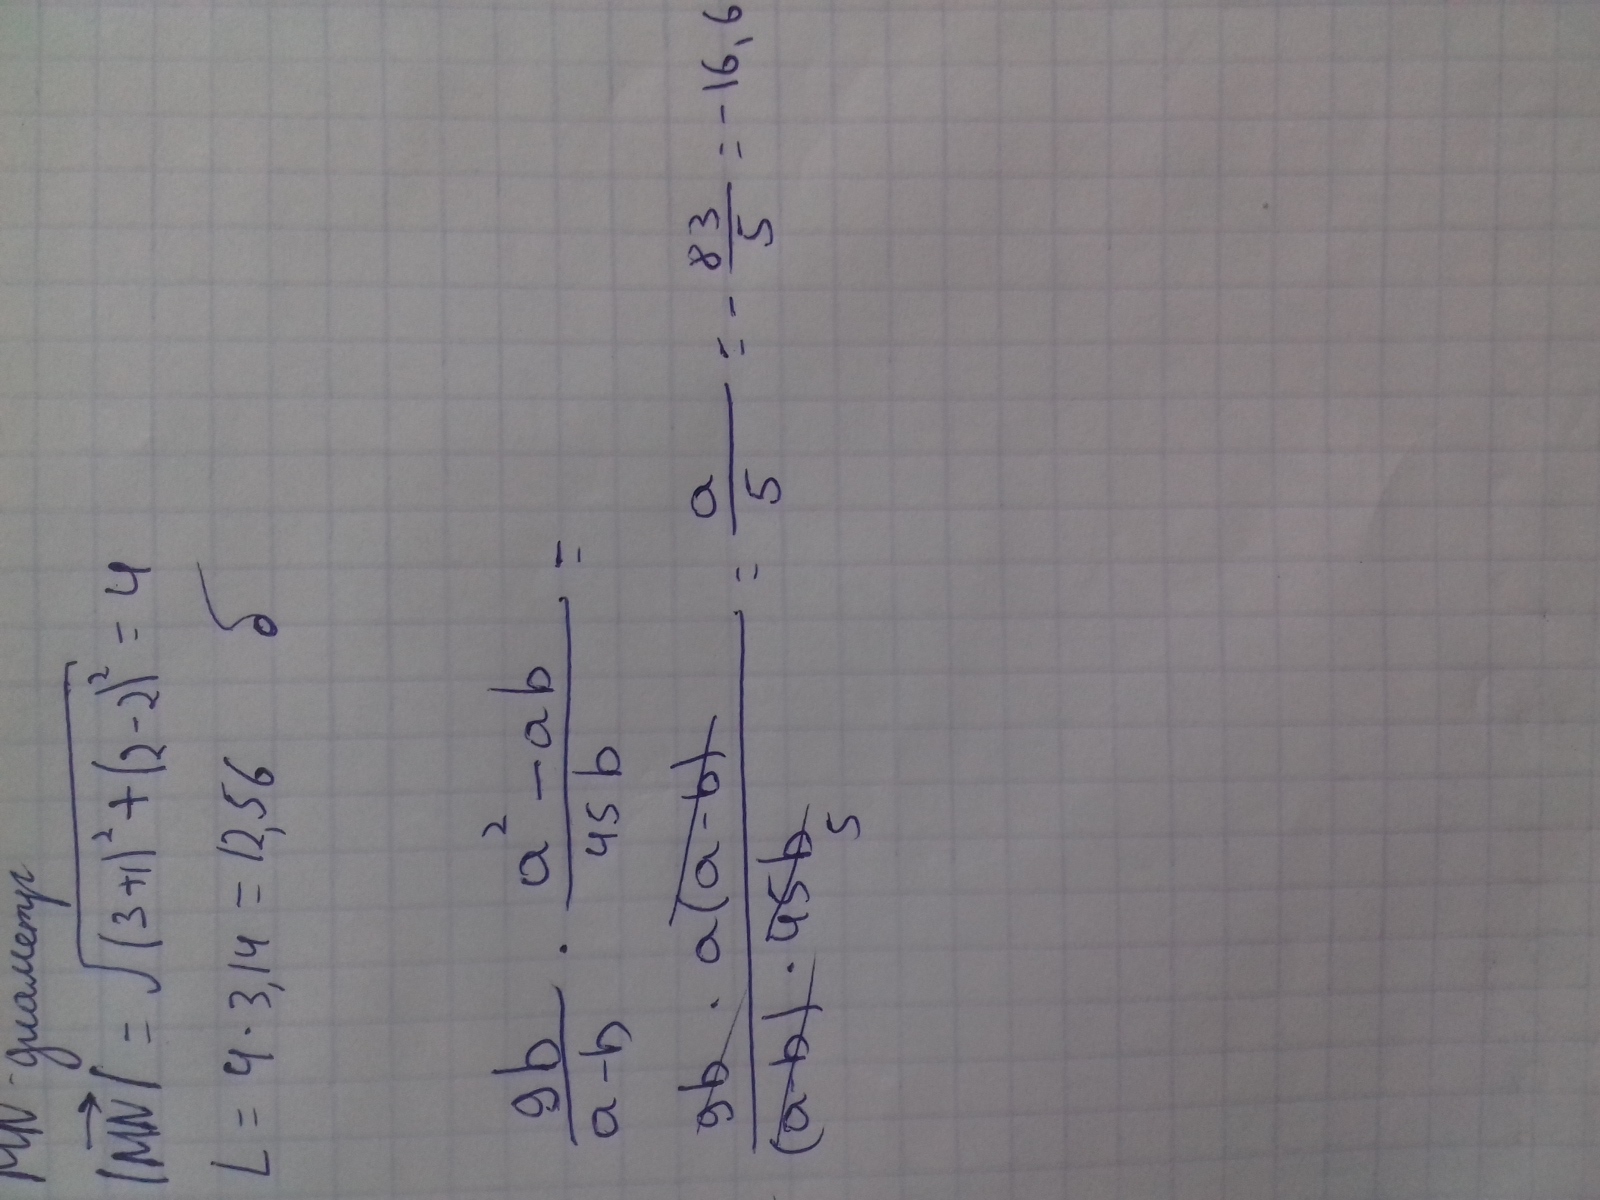 MN - диаметр
|MN| = √(3+1)² + (2-2)² = 4
L = 4 · 3,14 = 12,56 б
9b/(a-b) · (a² - ab)/45b =
9b · a(a-b)/((a-b) · 45b) = a/5 = - 83/5 = -16,6
5